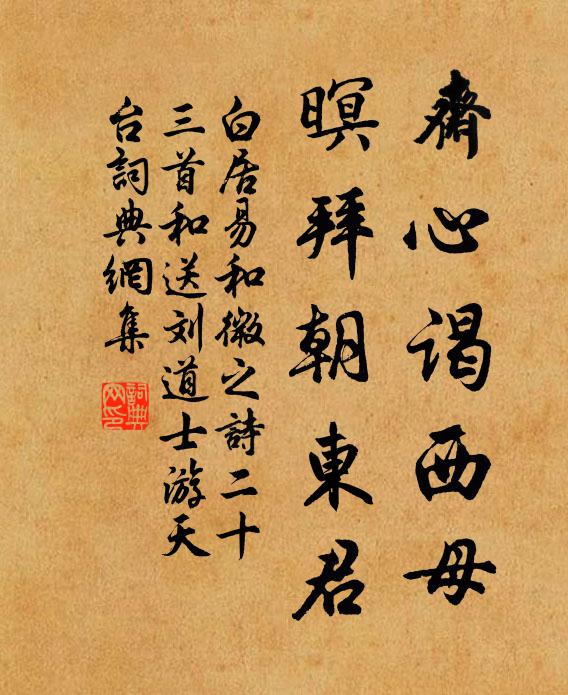 齋心謁西母
瞑拜朝東君
白居易和微之詩二十
三首和送刘道士游天
台詞典網集
詞典网印